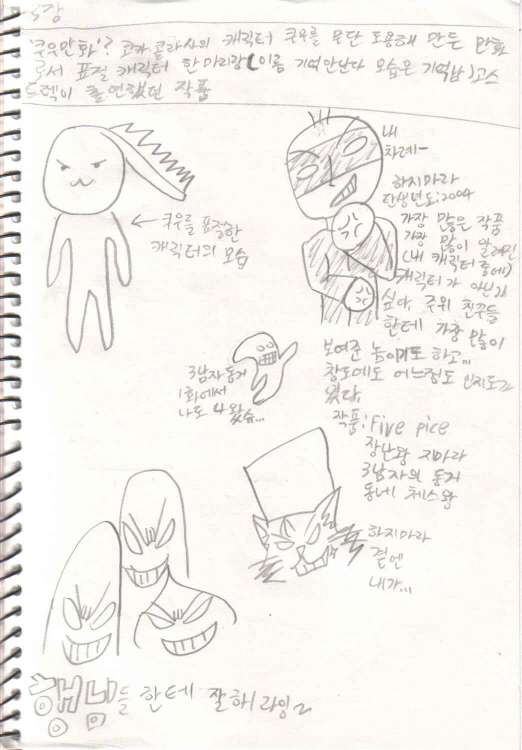 '쿠우만화'? 코카콜라사의 캐릭터 쿠우를 무단 도용해 만든 만화
로서 표절 캐릭터 한마리랑 (이름 기억안난다 모습은 기억남) 고스
트렉이 출연했던 작품
← 쿠우를 표절한
캐릭터의 모습
내
차례~
하지마라
탄생년도:2004
가장 많은 작품
가장 많이 알려진
(내 캐릭터 중에)
캐릭터가 아닌가
싶다. 주위 친구들
한테 가장 많이
보여준 놈이기도 하고...
창도에도 어느정도 인지도가
있다.
작품: Five pice
장난왕 지마라
3남자의 동거
동네 체스왕
3남자동거
1화에서
나도 나왔슴...
하지마라
곁엔
내가...
행님들 한테 잘해라잉~